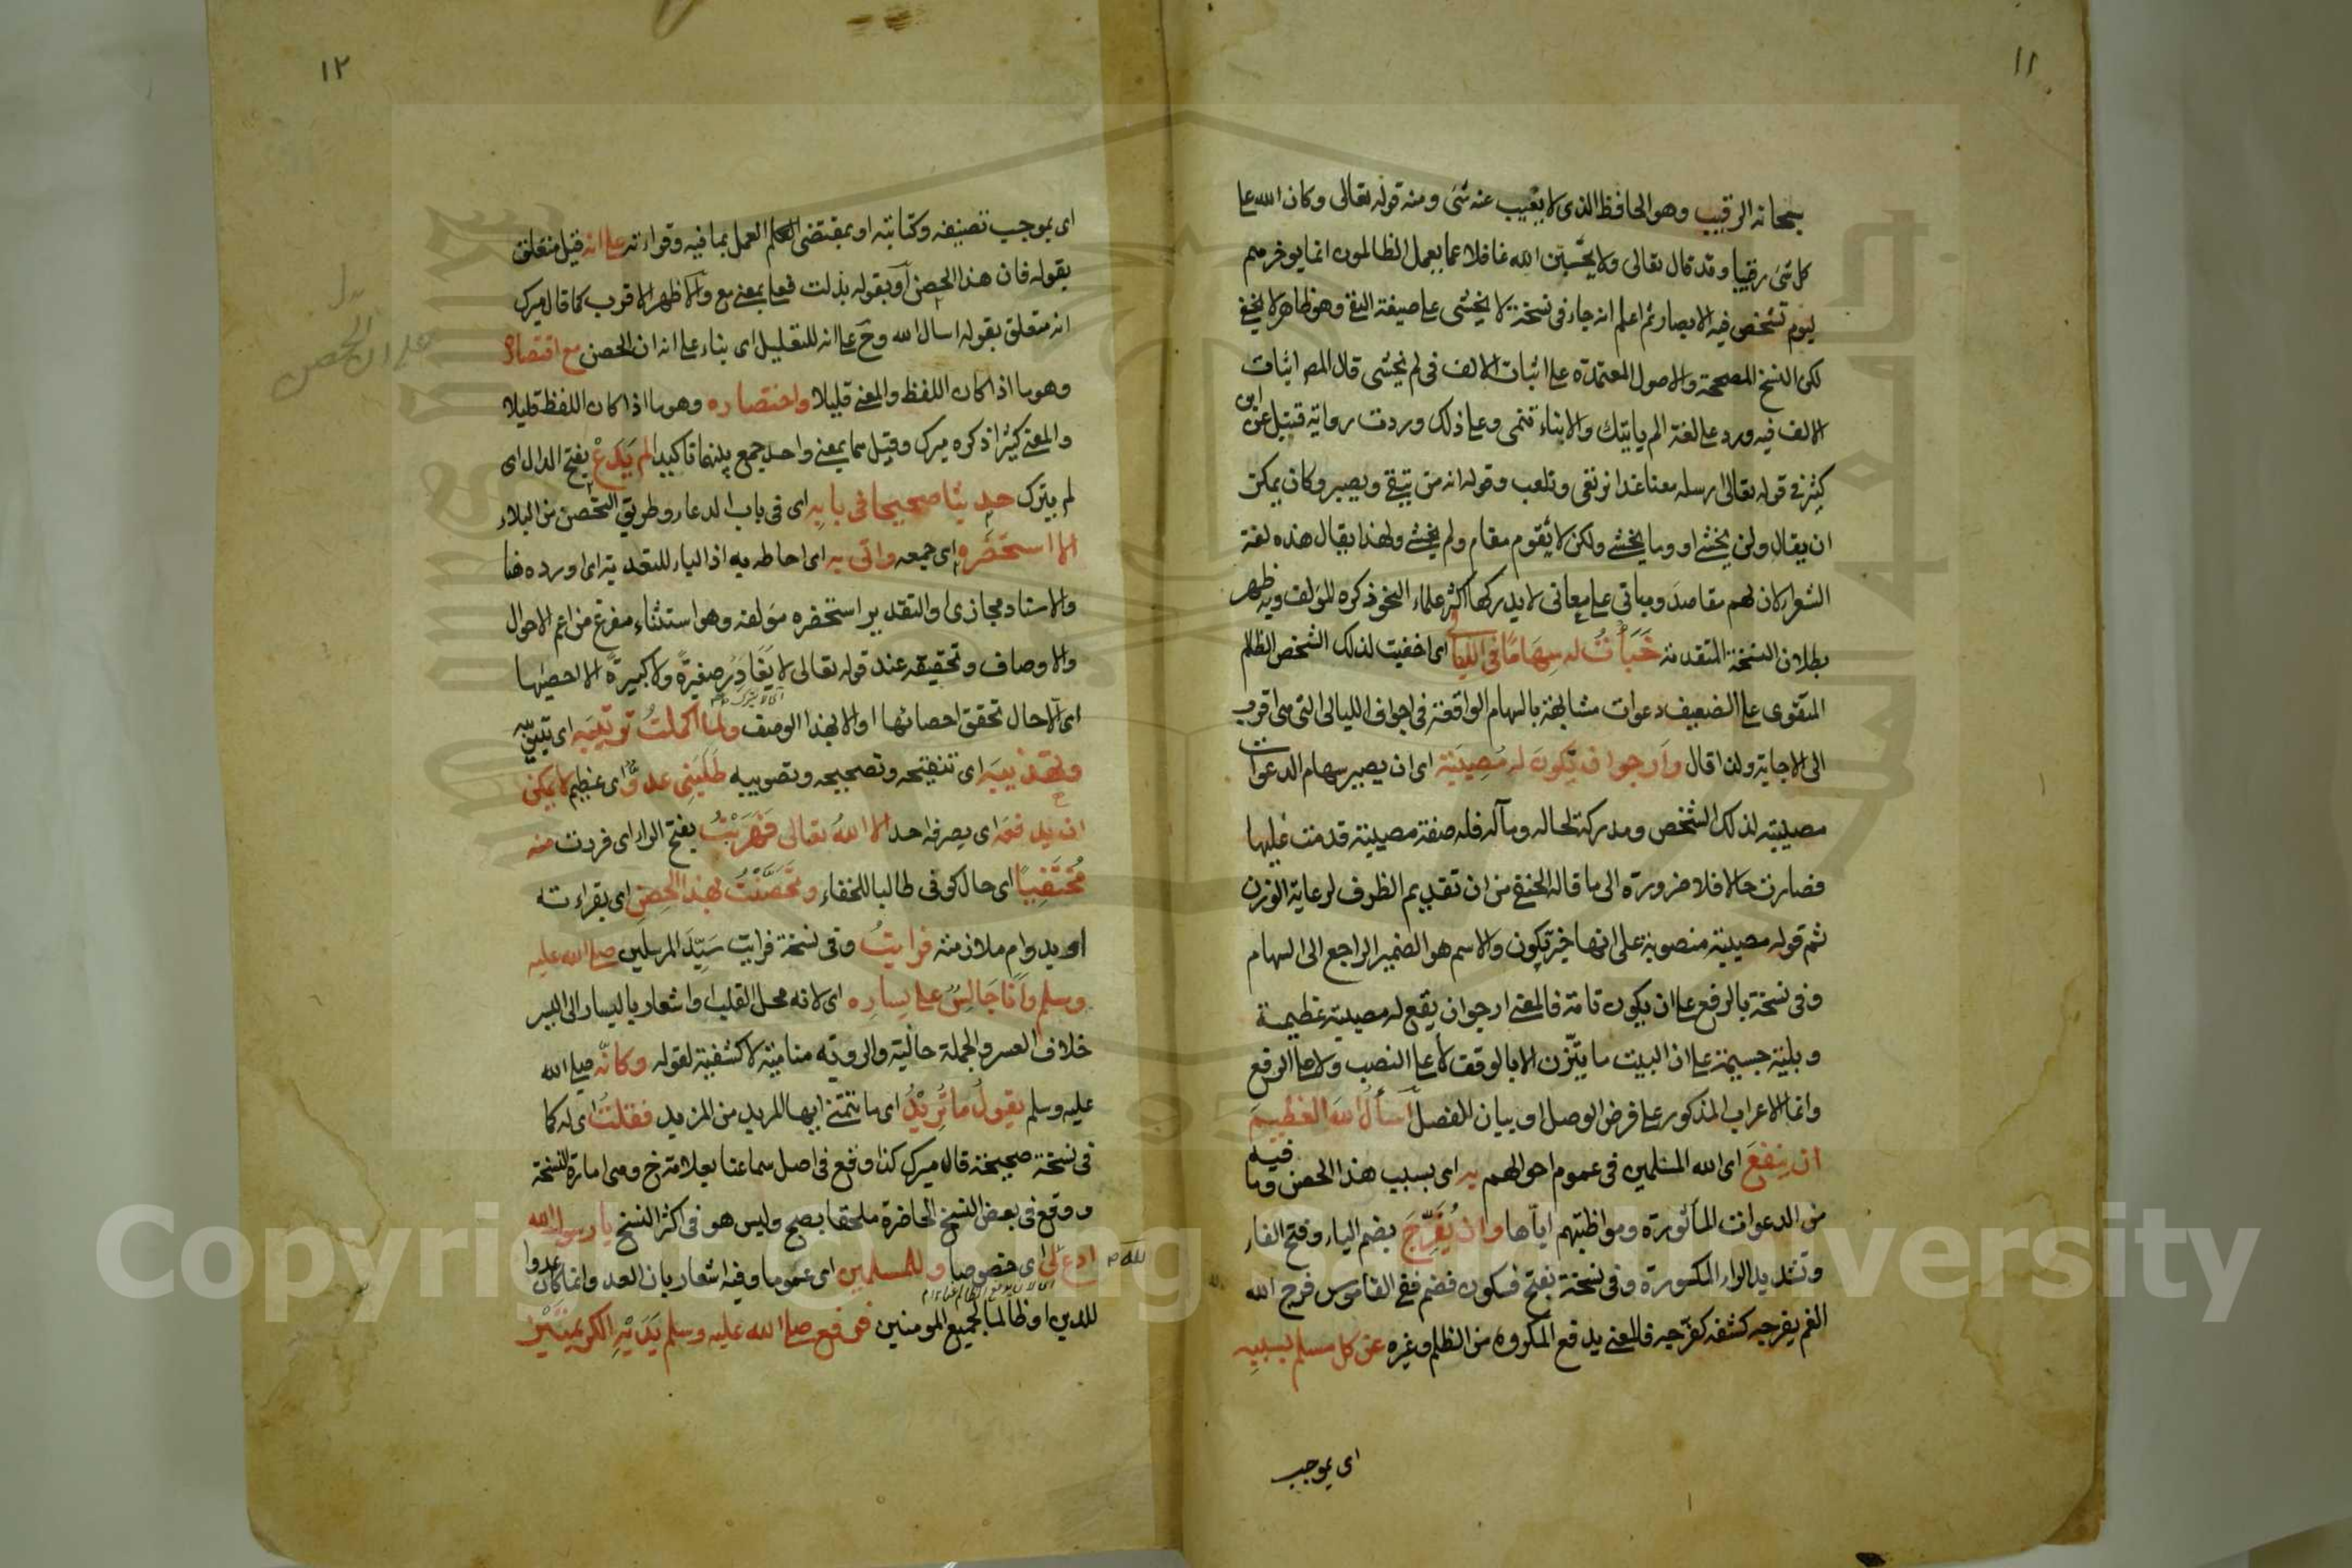 ١١
سبحانه الرقيب وهو الحافظ الذى لا يغيب عنه شئ ومنه قوله تعالى وكان الله على
كل شئ رقيبا وقد قال تعالى ولا تحسبن الله غافلا عما يعمل الظالمون انما يوخرهم
ليوم تشخص فيه الابصار ثم اعلم انه جاء فى نسخة لا يخشى على صيغة النفى وهو ظاهر لا يخفى
لكن النسخ المصححة والاصول المعتمدة على اثبات الالف فى لم يخشى قال المص اثبات
الالف فيه ورد على لغة الم ياتيك والانباء تنمى وعلى ذلك وردت رواية قنبل عن ابن
كثير فى قوله تعالى ارسله معنا غدا نرتعى ونلعب وقوله انه من يتقى ويصبر وكان يمكن
ان يقال ولن يخشى او وما يخشى ولكن لا يقوم مقام ولم يخشى ولهذا يقال هذه لغة
الشعراء لان لهم مقاصد ومبانى على معانى لا يدركها اكثر علماء النحو ذكره المؤلف وبه ظهر
بطلان النسخة المتقدمة خَبَأْتُ له سِهَامًا فى الليالى اى اخفيت لذلك الشخص الظالم
المتقوى على الضعيف دعوات مشابهة بالسهام الواقعة فى اجواف الليالى التى هى اقرب
الى الاجابة ولذا قال وَاَرجوا ان تكونَ له مُصِيبَة اى ان يصير سهام الدعوات
مصيبة لذلك الشخص ومدركة لحاله ومآله فله صفة مصيبة قدمت عليها
فصارت حالا فلا ضرورة الى ما قاله الحنفى من ان تقديم الظرف لرعاية الوزن
ثم قوله مصيبة منصوبة على انها خبر تكون والاسم هو الضمير الراجع الى السهام
وفى نسخة بالرفع على ان يكون تامة فالمعنى ارجوان يقع له مصيبة عظيمة
وبلية جسيمة على ان البيت ما يتزن الا بالوقف لا على النصب ولا على الرفع
وانما الاعراب المذكور على فرض الوصل او بيان للفصل اَسأَلُ اللهَ العَظِيمَ
ان ينفعَ اى الله المسلمين فى عموم احوالهم به اى بسبب هذا الحصن وما فيه
من الدعوات المأثورة ومواظبتهم اياها وان يُفَرِّجَ بضم الياء وفتح الفاء
وتشديد الراء المكسورة وفى نسخة بفتح فسكون فضم ففى القاموس فرج الله
الغم يفرجه كشفه كفرّجه فالمعنى يدفع المكروه من الظلم وغيره عن كل مسلم بسببه
اى بموجب
١٢
اى بموجب تصنيفه وكتابته او بمقتضى العمل بما فيه وقراءته على انه قيل متعلق
بقوله فان هذا الحصن او بقوله بذلت فعلى بمعنى مع والاظهر الاقرب كما قال ميرك
انه متعلق بقوله اسال الله وح على انه للتعليل اى بناء على انه ان الحصن مع اقتصاره
وهو ما اذا كان اللفظ والمعنى قليلا واختصاره وهو ما اذا كان اللفظ قليلا
والمعنى كثيرا ذكره ميرك وقيل هما بمعنى واحد جمع بينهما تاكيدا لم يَدَعْ بفتح الدال اى
لم يترك حديثا صحيحا فى بابه اى فى باب الدعاء وطريق التحصن من البلاء
الا استحضره اى جمعه واتى به اى احاط به اذ الباء للتعدية اى اورده هنا
والاسناد مجازى او التقدير استحضره مؤلفه وهو استثناء مفرغ من اعم الاحوال
والاوصاف وتحقيقه عند قوله تعالى لا يُغَادِرُ صغيرةً ولا كبيرةً الا احصيٰها
اى الا حال تحقق احصائها او الا بهذا الوصف ولما اكملتُ ترتيبَه اى تبيينه
وتهذيبَه اى تنقيحه وتصحيحه وتصويبه طَلَبَنِى عدوٌّ اى عظيم لا يمكن
ان يدفعَه اى يصرفه احد الا اللهُ تعالى فهَرَبْتُ بفتح الراء اى فررت منه
مُختَفِيًا اى حال كونى طالبا للخفاء وتَحَصَّنْتُ بهذا الحِصْنِ اى بقراءته
او بدوام ملازمته فرايتُ وفى نسخة فرايت سَيِّدَ المرسلين صلى الله عليه
وسلم وَاَنَا جَالِسٌ على يسارِه اى لانه محل القلب او اشعار باليسار الى اليسر
خلاف العسر والجملة حالية والرويه منامية لا كشفية لقوله وكانّه صلى الله
عليه وسلم يقولُ ما تُرِيْدُ اى ما تتمنى ايها المريد من المزيد فقلتُ اى له كما
فى نسخة صحيحة قال ميرك كذا وقع فى اصل سماعنا بعلامة خ وهى امارة النسخة
ووقع فى بعض النسخ الحاضرة ملحقا بصح وليس هو فى اكثر النسخ يا رسول الله
ادع الله لى اى خصوصا وللمسلمين اى عموما وفيه اشعار بان العدو انما كان عدوا
للدين او ظالما لجميع المومنين فرفع صلى الله عليه وسلم يَدَيْهِ الكريمتَيْن
على ان الحصن
Copyright © King Saud University